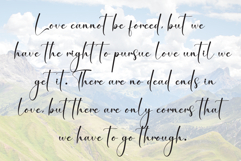 Love cannot be forced, but we
have the right to pursue love until we
get it. There are no dead ends in
love, but there are only corners that
we have to go through.